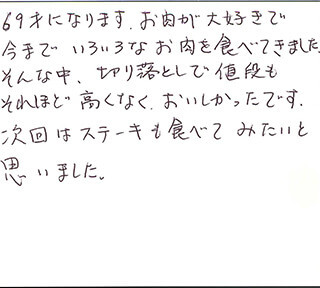 69才になります。お肉が大好きで
今まで いろいろなお肉を食べてきました
そんな中、切り落としで値段も
それほど高くなく、おいしかったです。
次回はステーキも食べてみたいと
思いました。